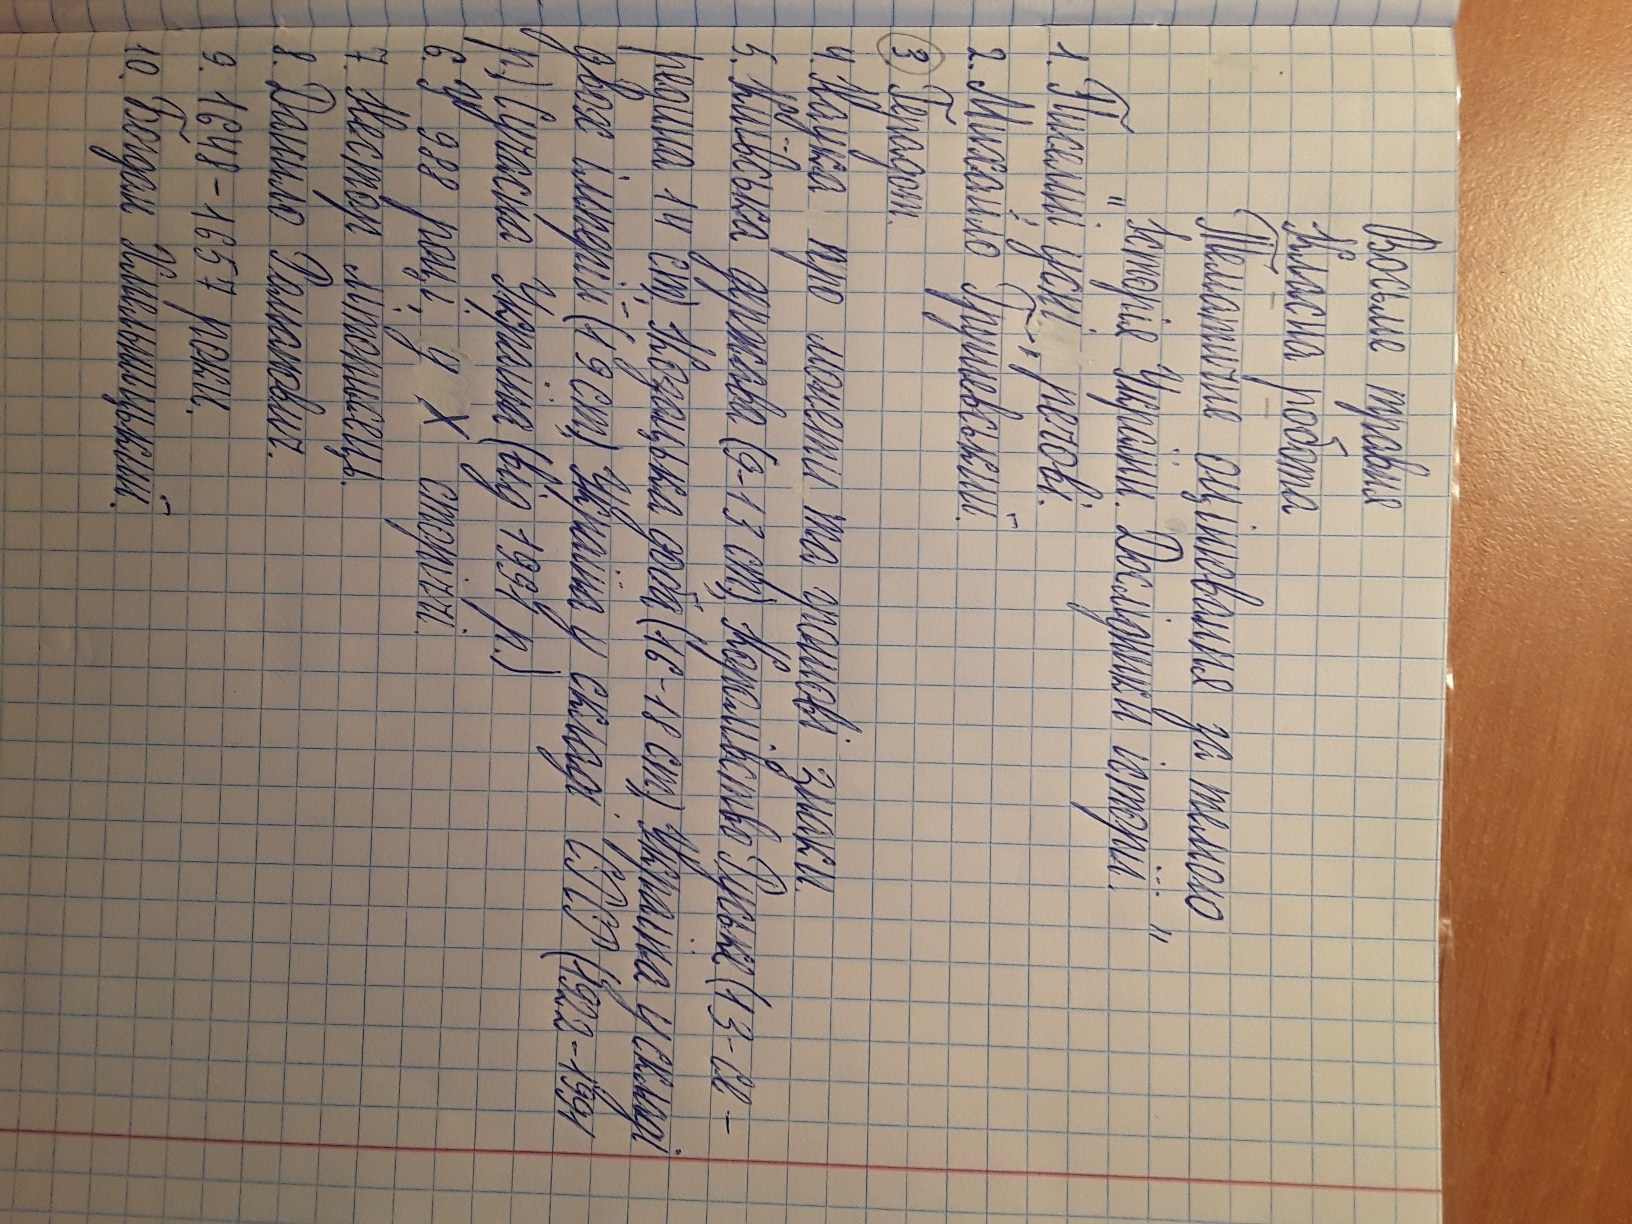 Восьме травня
Класна робота
Тематичне оцінювання за темою
"Історія України. Дослідники історії."
1. Писемні, усні, речові.
2. Михайло Грушевський.
3 Геродот.
4. Наука про монети та грошові знаки
5. Київська держава (9-13 ст.) Королівство Руське (13-се-
редина 14 ст.) Козацька доба (16-18 ст.) Україна у складі
двох імперій (19 ст.) Україна у складі СРСР (1922-1991
р.) Сучасна Україна (від 1991 р.)
6. у 988 році, у X сторіччі.
7. Нестор літописець.
8. Данило Романович.
9. 1648-1657 роки.
10. Богдан Хмельницький.